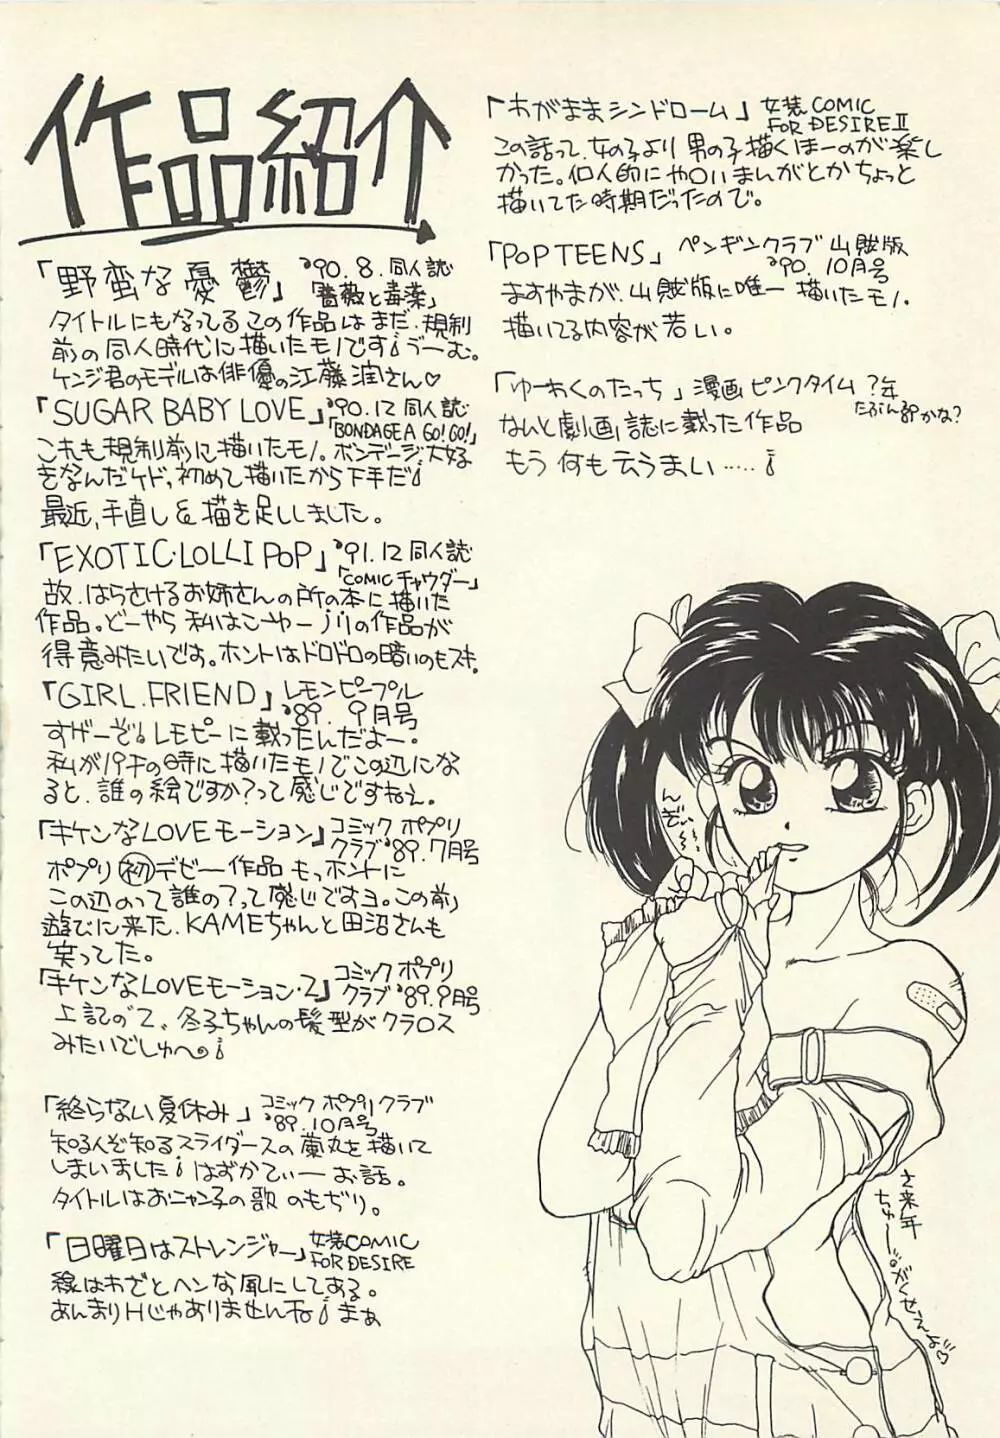 作品紹介
「野蛮な憂鬱」'90.8.同人誌
「薔薇と毒薬」
タイトルにもなってるこの作品はまだ、規制
前の同人時代に描いたモノです!うーむ。
ケンジ君のモデルは俳優の江藤潤さん♡
「SUGAR BABY LOVE」'90.12同人誌
「BONDAGE A GO!GO!」
これも規制前に描いたモノ。ボンデージ大好
きなんだケド、初めて描いたから下手だ!
最近、手直し&描き足ししました。
「EXOTIC・LOLLI POP」'91.12同人誌
「COMICチャウダー」
故、はらさけるお姉さんの所の本に描いた
作品。どーやら私はこーゆーノリの作品が
得意みたいです。ホントはドロドロの暗いのもスキ。
「GIRL.FRIEND」レモンピープル
'89.9月号
すげーぞ!レモピーに載ったんだよー。
私が19才の時に描いたモノでこの辺にな
ると、誰の絵ですか?って感じですねえ。
「キケンなLOVEモーション」コミックポプリ
クラブ'89.7月号
ポプリ初デビー作品もっホントに
この辺のって誰の?って感じですヨ。この前
遊びに来た、KAMEちゃんと田沼さんも
笑ってた。
「キケンなLOVEモーション・2」コミックポプリ
クラブ'89.9月号
上記の2、冬子ちゃんの髪型がクラロス
みたいでしゅへの!
「終らない夏休み」コミックポプリクラブ
'89.10月号
知る人ぞ知るスライダースの蘭丸を描いて
しまいました!はずかてぃーお話。
タイトルはおニャン子の歌のもぢり。
「日曜日はストレンジャー」女装COMIC
FOR DESIRE
線はわざとヘンな風にしてある。
あんまりHじゃありませんね!まぁ
「わがままシンドローム」女装COMIC
FOR DESIRE II
この話って、女の子より男の子描くほーのが楽し
かった。個人的にや○いまんがとかちょっと
描いてた時期だったので。
「POP TEENS」ペンギンクラブ山賊版
'90.10月号
ますやまが、山賊版に唯一描いたモノ。
描いてる内容が若い。
「ゆーわくのたっち」漫画ピンクタイム?年
たぶん89かな?
なんと劇画誌に載った作品
もう何も云うまい……!
んぞぃ〜〜
さ来年
ちゅー。がくせえよ♡